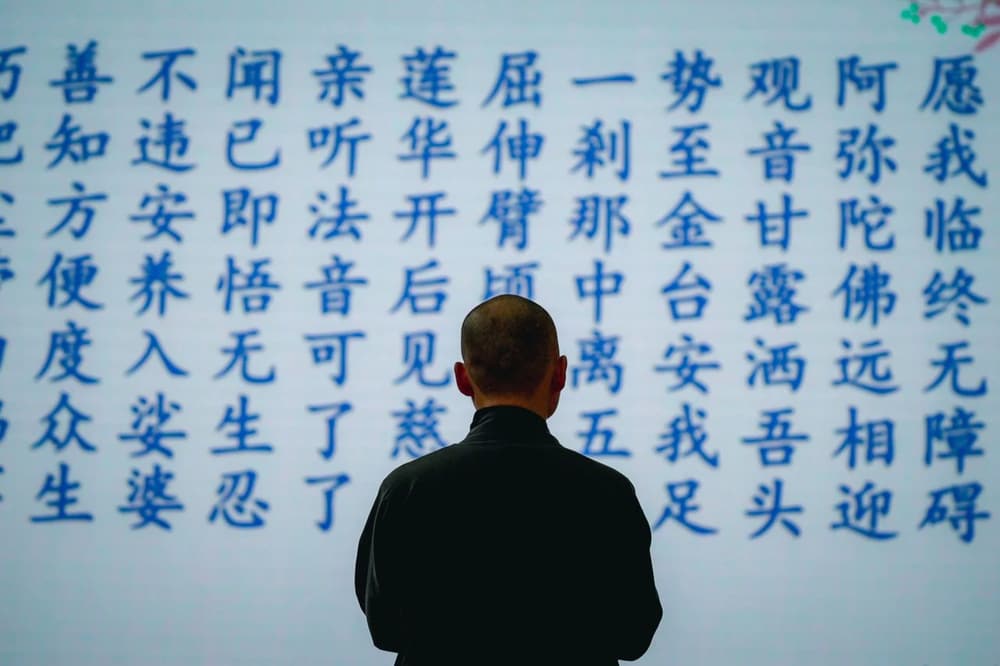 愿我临终无障碍
阿弥陀佛远相迎
观音甘露洒吾头
势至金台安我足
一刹那中离五
屈伸臂顷
莲华开后见慈
亲听法音可了了
闻已即悟无生忍
不违安养入娑婆
善知方便度众生